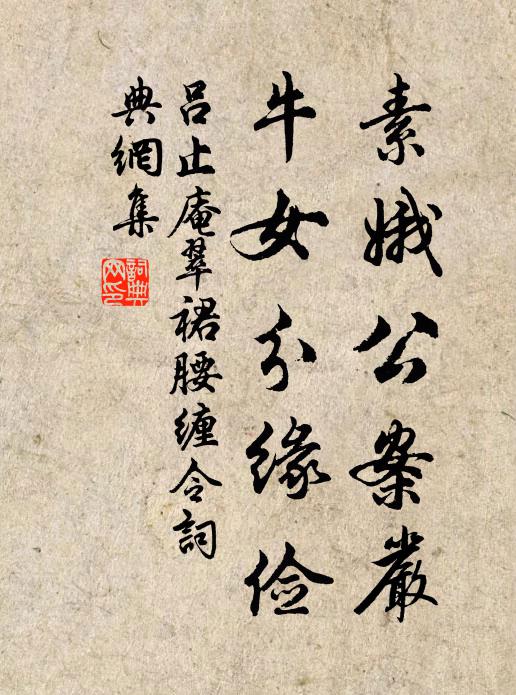 素娥公案嚴
牛女分緣俭
呂止庵翠裙腰缠令詞
典網集
詞典网印